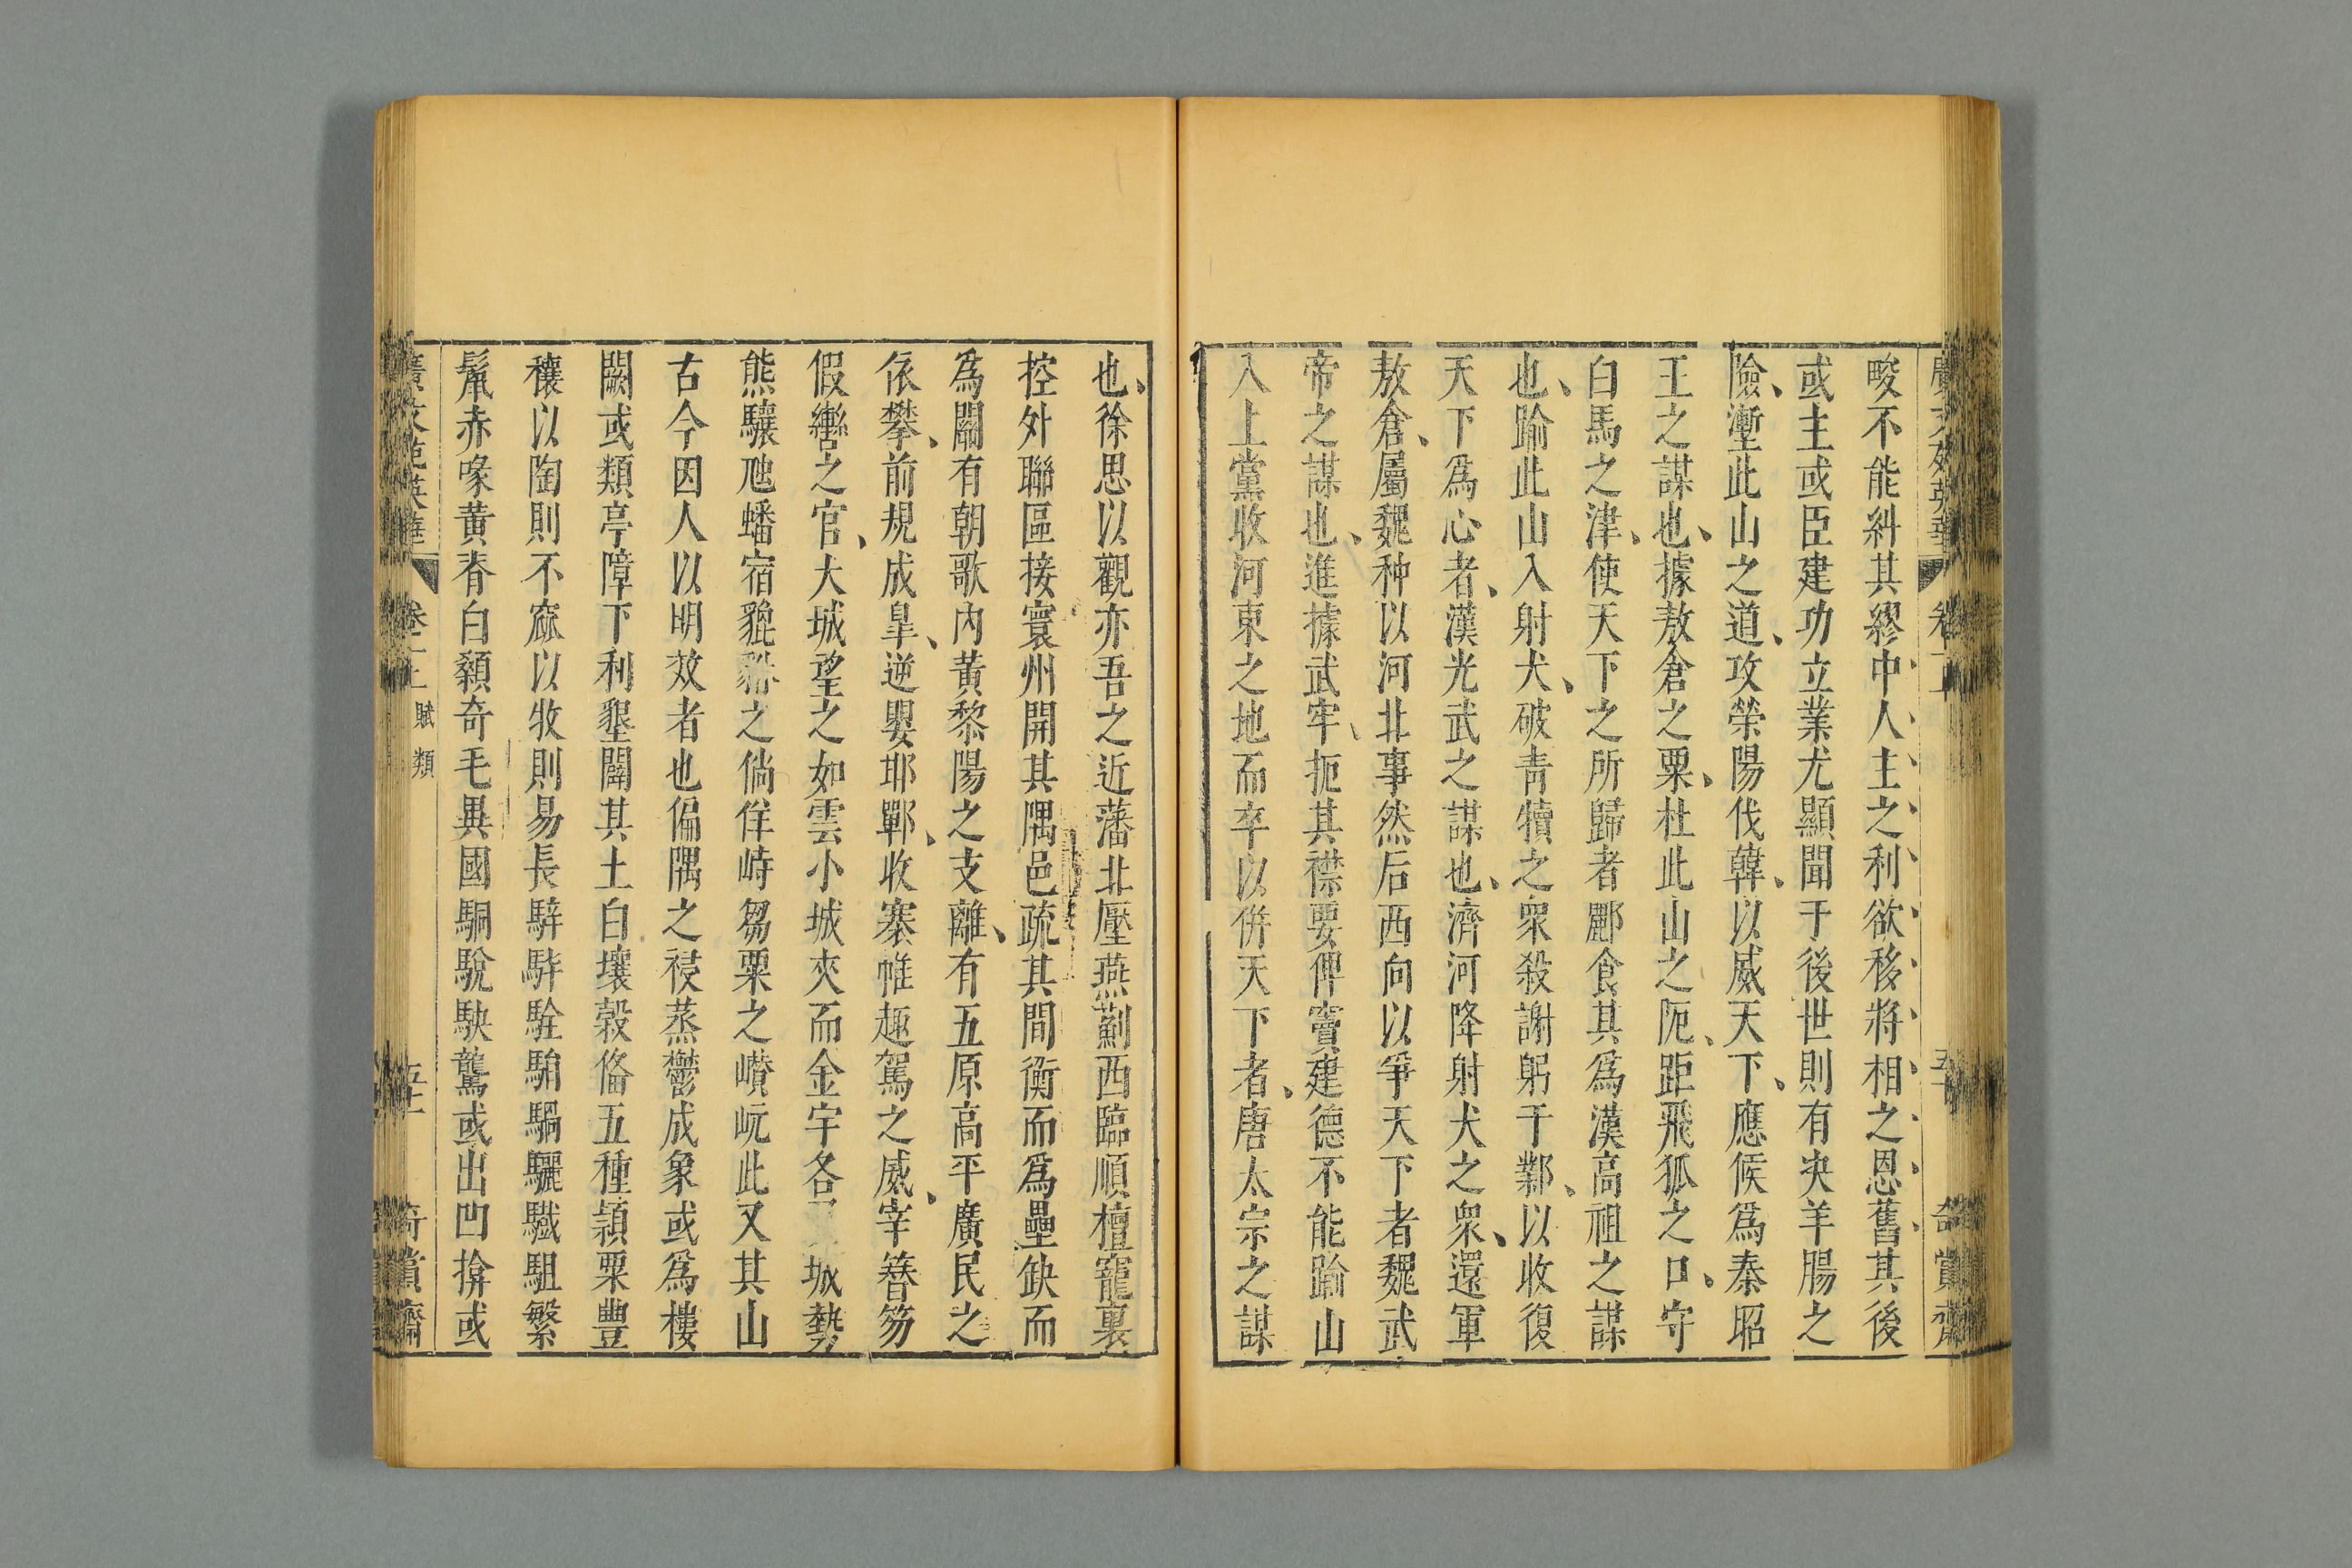 畯不能糾其繆中人主之利欲移將相之恩舊其後
或主或臣建功立業尤顯聞于後世則有夬羊腸之
險、塹此山之道、攻滎陽伐韓、以威天下、應候爲秦昭
王之謀也、據敖倉之粟、杜此山之阨、距飛狐之口、守
白馬之津、使天下之所歸者酈食其爲漢高祖之謀
也、踰此山入射犬、破青犢之衆殺謝躬于鄴、以收復
天下爲心者、漢光武之謀也、濟河降射犬之衆、還軍
敖倉、屬魏种以河北事然后西向以爭天下者魏武
帝之謀也、進據武牢、扼其襟要俾竇建德不能踰山
入上黨收河東之地而卒以併天下者、唐太宗之謀
也、徐思以觀亦吾之近藩北壓燕薊西臨順檀竈裏
控外聯區接寰州開其隅邑疏其間衡而爲壘缺而
爲關有朝歌內黃黎陽之支離、有五原高平廣民之
依攀、前規成皐、逆嬰邯鄲、收褰帷趣駕之威、宰簪笏
假轡之官、大城望之如雲小城夾而金宇各 城勢
熊驤虺蟠宿貔貅之倘佯峙芻粟之巑岏此又其山
古今因人以明效者也偏隅之祲蒸鬱成象或爲樓
闕或類亭障下利墾闢其土白壤穀俻五種頴粟豐
穰以陶則不窳以牧則易長騂馯駩騧驪驖駔繁
鬣赤喙黃脊白顙奇毛異國駉駾駚驚或出凹揜或
賦類
奇賞齋